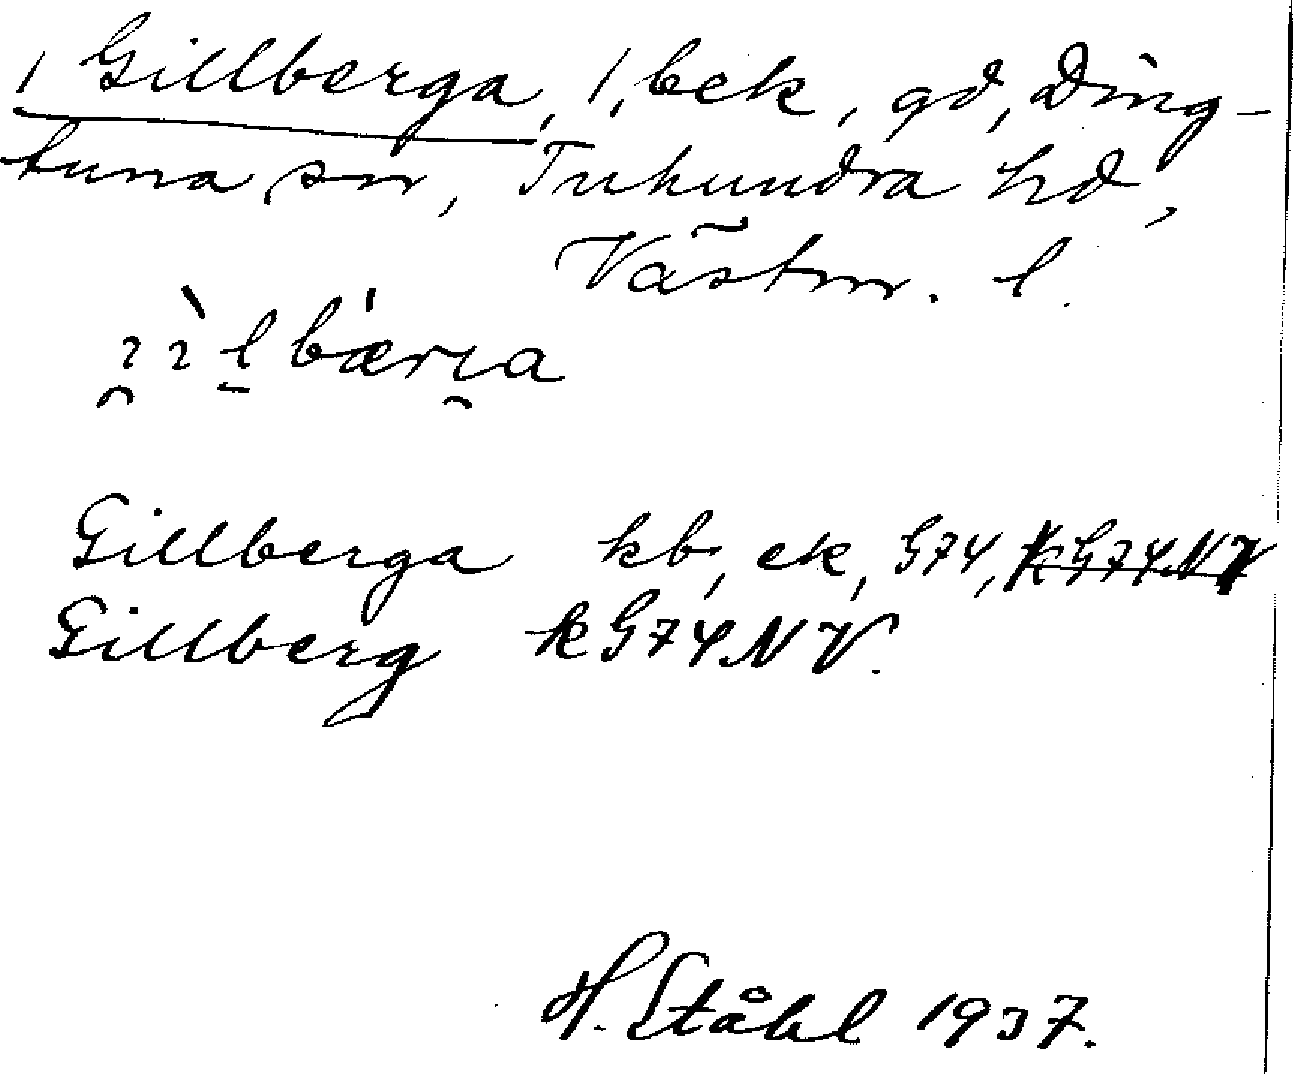 1 Gillberga, 1, bek, gd, Ding-
tuna sn, Tuhundra hd,
Västm. l.
Gillberga kb, ek, G74, kG74NV
Gillberg kG74NV.
H. Ståhl 1937.